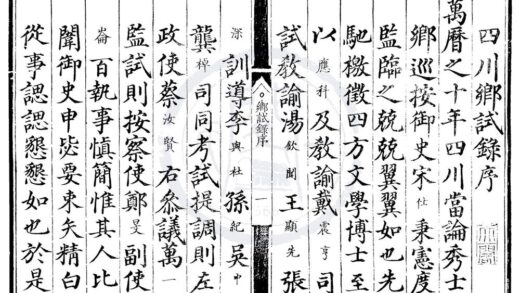 四川鄉試錄序
萬曆之十年四川當論秀士
鄉巡按御史宋仕秉憲度
監臨之兢兢翼翼如也先
馳檄徵四方文學博士至
以應科及教諭戴震亨司
試教諭湯欽聞王顯先張
鄉試錄序 一
深訓導李興杜孫紀吳中
龔樟司同考試提調則左
政使蔡汝賢右叅議萬一
監試則按察使鄭旻副使
崙百執事慎簡惟其人比
闈御史申毖要束矢精白
從事諰諰懇懇如也於是